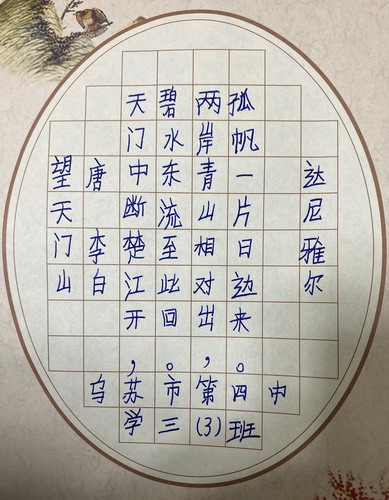 望天门山
唐 李白
天门中断楚江开，
碧水东流至此回。
两岸青山相对出，
孤帆一片日边来。
达尼雅尔
乌苏市第四中
学三(3)班